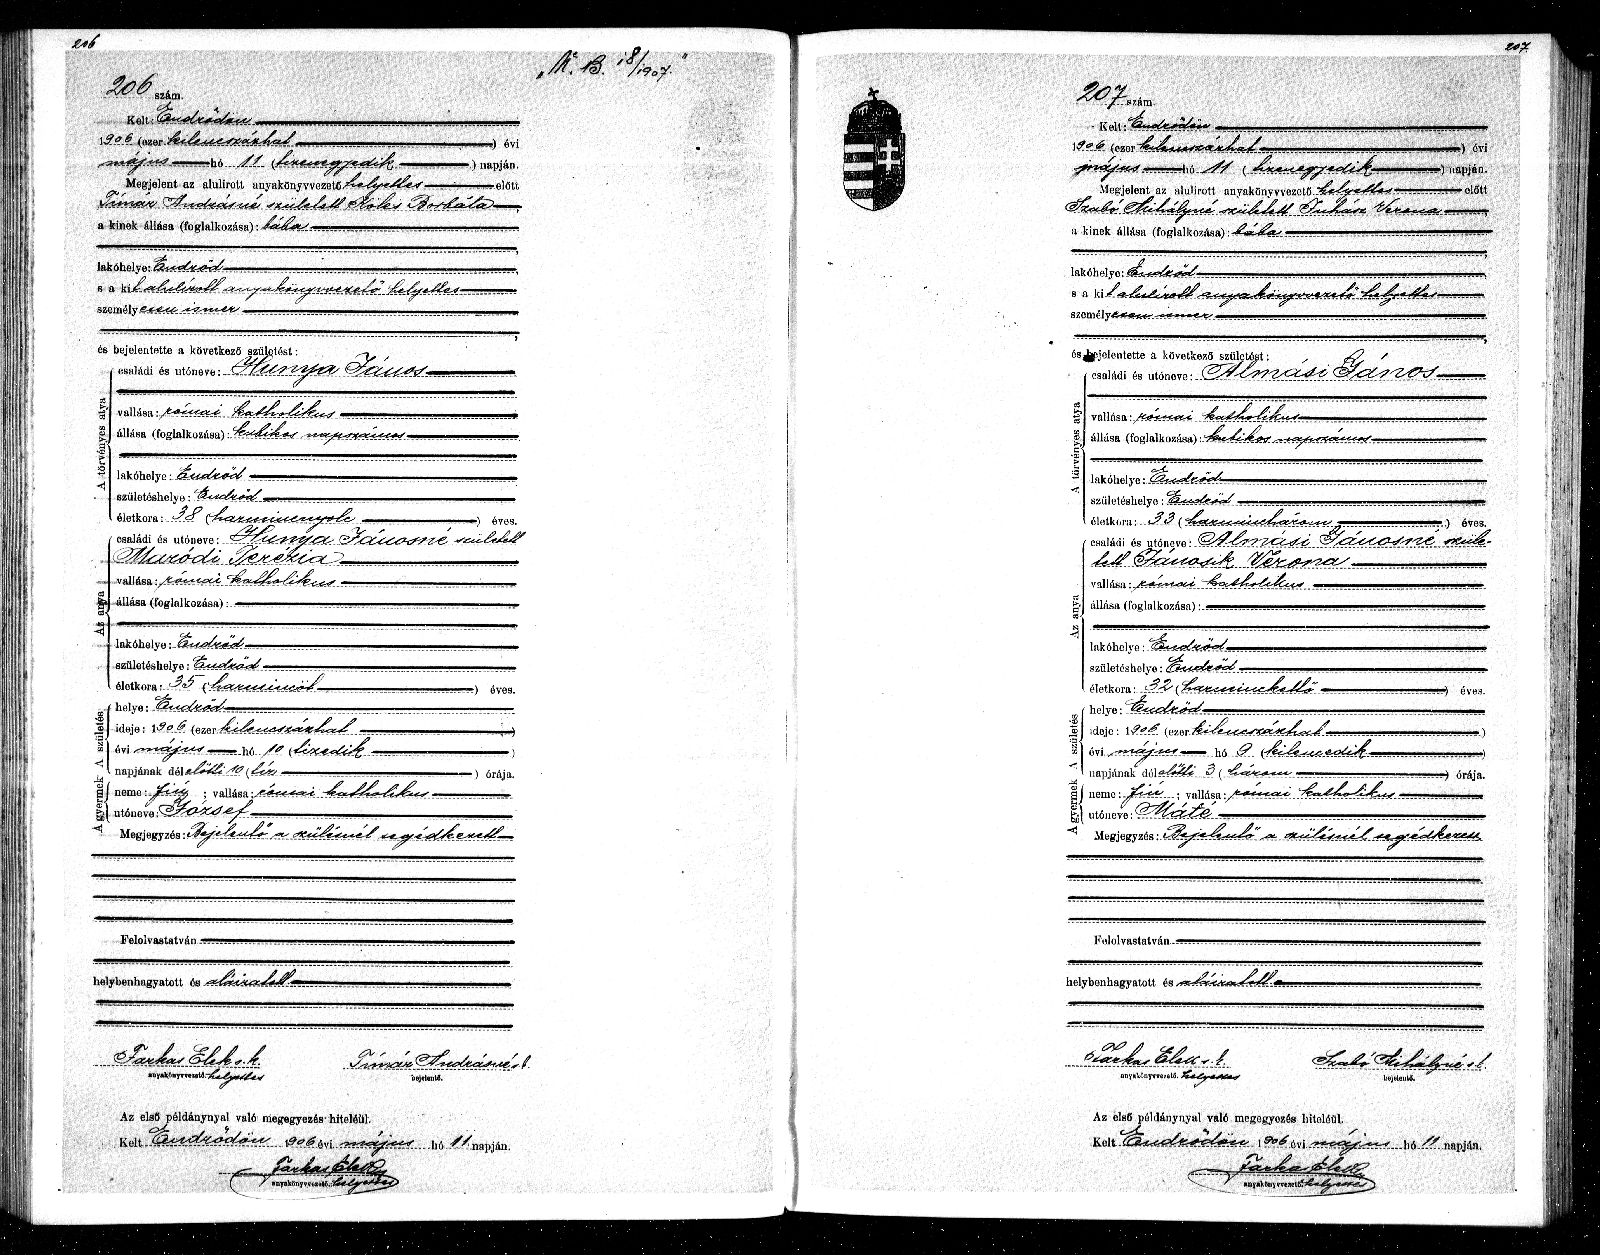 206
„M. B. 18/1907."
206 szám.
Kelt: Endrődön
1906 (ezer kilenczszázhat) évi
május hó 11 (tizenegyedik) napján.
Megjelent az alulirott anyakönyvvezető helyettes előtt
Tímár Andrásné született Borbála
a kinek állása (foglalkozása): bába
lakóhelye: Endrőd
s a kit alulírott anyakönyvvezető helyettes
személyesen ismer
és bejelentette a következő születést:
A törvényes atya
családi és utóneve: Hunya János
vallása: római katholikus
állása (foglalkozása): kubikos napszámos
lakóhelye: Endrőd
születéshelye: Endrőd
életkora: 38 (harmincnyolc) éves.
Az anya
családi és utóneve: Hunya Jánosné született
Maródi Terézia
vallása: római katholikus
állása (foglalkozása):
lakóhelye: Endrőd
születéshelye: Endrőd
életkora: 35 (harmincöt) éves.
A születés
helye: Endrőd
ideje: 1906 (ezer kilenczszázhat)
évi május hó 10 (tizedik)
napjának délelőtti 10 (tíz) órája.
A gyermek
neme: fiú; vallása: római katholikus
utóneve: József
Megjegyzés: Bejelentő a szülésnél segédkezett
Felolvastatván
helybenhagyatott és aláíratott
Farkas Elek s. k. Tímár Andrásné s. k.
anyakönyvvezető. helyettes bejelentő.
Az első példánynyal való megegyezés hiteléül.
Kelt Endrődön 1906 évi május hó 11 napján.
Farkas Elek
anyakönyvvezető. helyettes
207
207 szám
Kelt: Endrődön
1906 (ezer kilenczszázhat) évi
május hó 11 (tizenegyedik) napján.
Megjelent az alulirott anyakönyvvezető helyettes előtt
Szabó Mihályné született Juhász Verona
a kinek állása (foglalkozása): bába
lakóhelye: Endrőd
s a kit alulírott anyakönyvvezető helyettes
személyesen ismer
és bejelentette a következő születést:
A törvényes atya
családi és utóneve: Almási János
vallása: római katholikus
állása (foglalkozása): kubikos napszámos
lakóhelye: Endrőd
születéshelye: Endrőd
életkora: 33 (harminchárom) éves.
Az anya
családi és utóneve: Almási Jánosné szüle-
tett Jánosik Verona
vallása: római katholikus
állása (foglalkozása):
lakóhelye: Endrőd
születéshelye: Endrőd
életkora: 32 (harminckettő) éves.
A születés
helye: Endrőd
ideje: 1906 (ezer kilenczszázhat)
évi május hó 9 (kilencedik)
napjának délelőtti 3 (három) órája.
A gyermek
neme: fiú; vallása: római katholikus
utóneve: Máté
Megjegyzés: Bejelentő a szülésnél segédkezett
Felolvastatván
helybenhagyatott és aláíratott
Farkas Elek s. k. Szabó Mihályné s. k.
anyakönyvvezető. helyettes bejelentő.
Az első példánynyal való megegyezés hiteléül.
Kelt Endrődön 1906 évi május hó 11 napján.
Farkas Elek
anyakönyvvezető. helyettes